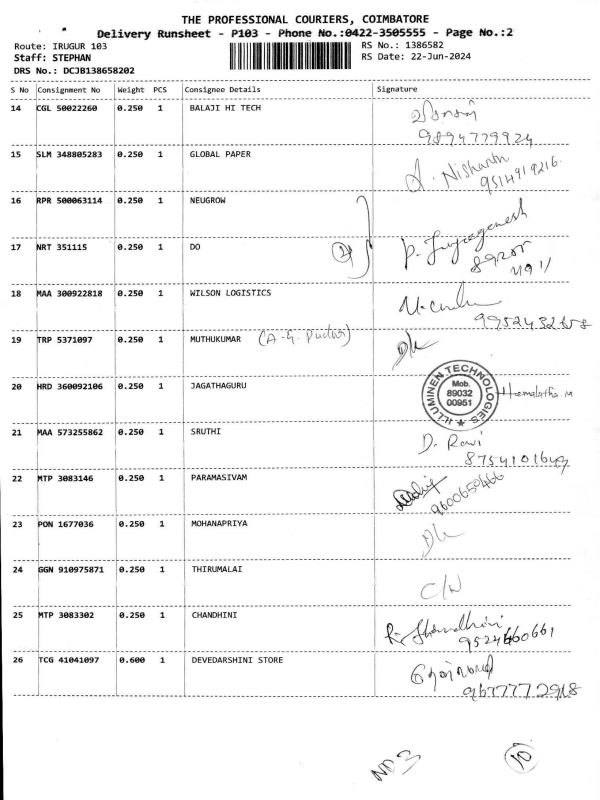 THE PROFESSIONAL COURIERS, COIMBATORE
Delivery Runsheet - P103 - Phone No.:0422-3505555 - Page No.:2
Route: IRUGUR 103 RS No.: 1386582
Staff: STEPHAN RS Date: 22-Jun-2024
DRS No.: DCJB138658202
S No Consignment No Weight PCS Consignee Details Signature
14 CGL 50022260 0.250 1 BALAJI HI TECH
9894779924
15 SLM 348805283 0.250 1 GLOBAL PAPER
A. Nishanth
9514919216.
16 RPR 500063114 0.250 1 NEUGROW
17 NRT 351115 0.250 1 DO 2
18 MAA 300922818 0.250 1 WILSON LOGISTICS
19 TRP 5371097 0.250 1 MUTHUKUMAR (A-G. Pudur)
20 HRD 360092106 0.250 1 JAGATHAGURU
ILLUMINEN TECHNOLOGIES ★
Mob.
89032
00951
Hemalatha M
21 MAA 573255862 0.250 1 SRUTHI
D. Ravi
22 MTP 3083146 0.250 1 PARAMASIVAM
9600650466
23 PON 1677036 0.250 1 MOHANAPRIYA
24 GGN 910975871 0.250 1 THIRUMALAI
25 MTP 3083302 0.250 1 CHANDHINI
26 TCG 41041097 0.600 1 DEVEDARSHINI STORE
ND 3
10